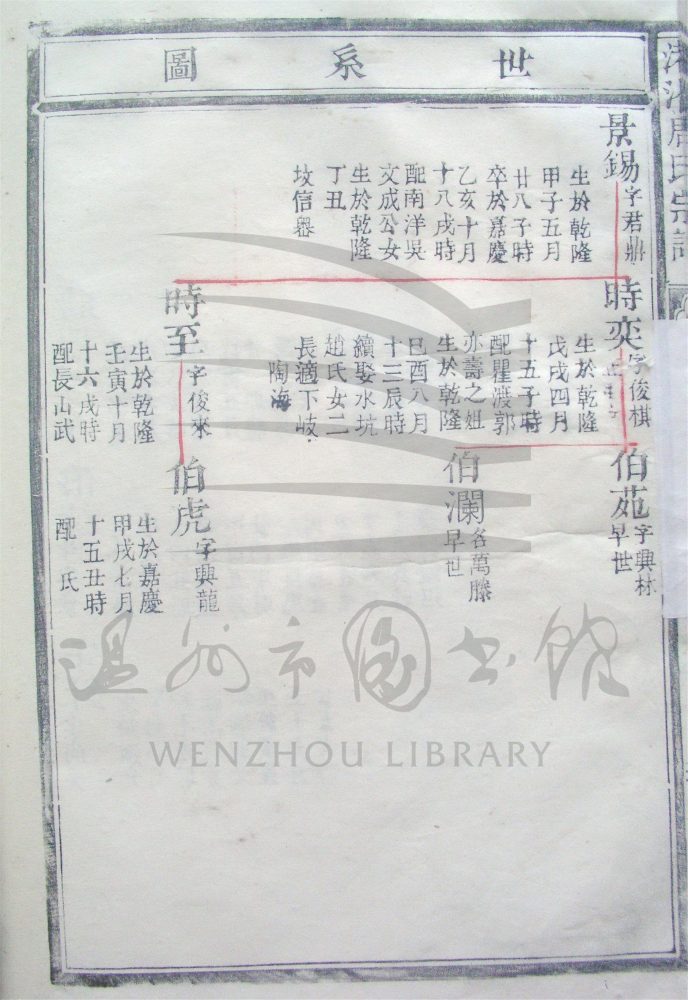 世系圖
周氏宗譜
景錫
字君鼎
生於乾隆
甲子五月
廿八子時
卒於嘉慶
乙亥十月
十八戌時
配南洋吳
文成公女
生於乾隆
丁丑
坟信嶴
時奕
字俊棋
生於乾隆
戊戌四月
十五子時
配瞿渡郭
亦壽之姐
生於乾隆
己酉八月
十三辰時
續娶水坑
趙氏女二
長適下岐
陶海
時至
字俊來
生於乾隆
壬寅十月
十六戌時
配長山武
伯苑
字興林
早世
伯瀾
名萬滕
早世
伯虎
字興龍
生於嘉慶
甲戌七月
十五丑時
配 氏
温州市图书馆
WENZHOU LIBRARY